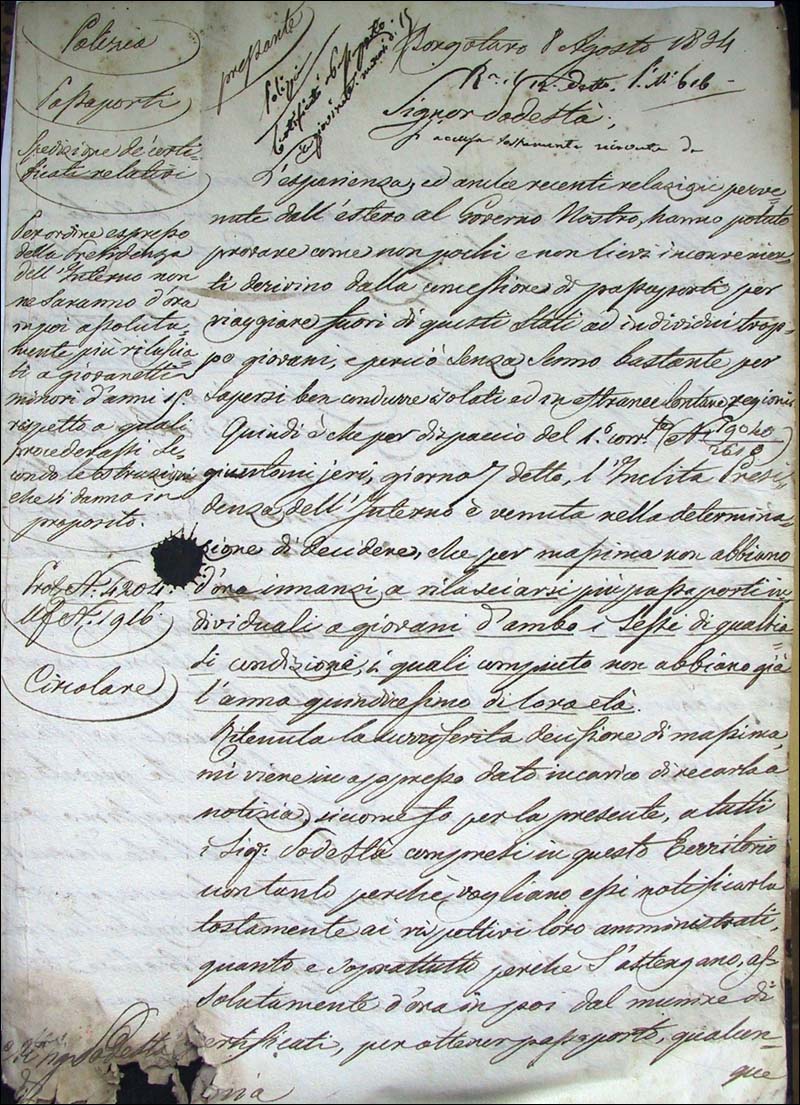 Polizia
Passaporti
Spedizione de' certi-
ficati relativi
Per ordine espresso
della Presidenza
dell'Interno non
ne saranno d'ora
in poi assoluta-
mente più rilascia-
ti a giovanetti
minori d'anni 15
rispetto a quali
procederassi se-
condo le istruzioni
che si danno in
proposito.
Prot. N. 4204.
Uff. N. 1916.
Circolare
pressante
Polizia
Certificati Passaporto
ai giovinetti minori di 15
Borgotaro 8 Agosto 1834
R. 12 detto. P. N. 616
Signor Podestà,
si accusa
L'esperienza, ed anche recenti relazioni perve-
nute dall'estero al Governo Nostro, hanno potuto
provare come non pochi e non lievi inconvenien-
ti derivino dalla concessione di passaporti per
viaggiare fuori di questi Stati ad individui trop-
po giovani, e perciò senza senno bastante per
sapersi ben condurre isolati ed in estranee lontane regioni.
Quindi è che per dispaccio del 1.º corr.te
giuntomi jeri, giorno 7 detto, l'Inclita Presi-
denza dell'Interno è venuta nella determina-
zione di decidere, che per massima non abbiano
d'ora innanzi a rilasciarsi più passaporti in-
dividuali a giovani d'ambo i sessi di qualsia-
si condizione, i quali compiuto non abbiano già
l'anno quindicesimo di loro età.
Ritenuta la surriferita decisione di massima,
mi viene in appresso dato incarico di recarla a
notizia, siccome fo per la presente, a tutti
i Sigi. Podestà compresi in questo Territorio
non tanto perchè vogliano essi notificarla
tostamente ai rispettivi loro amministrati,
quanto e soprattutto perchè s'astengano, as-
solutamente d'ora in poi dal munire di
certificati, per ottener passaporto, qualun-
que
Podestà